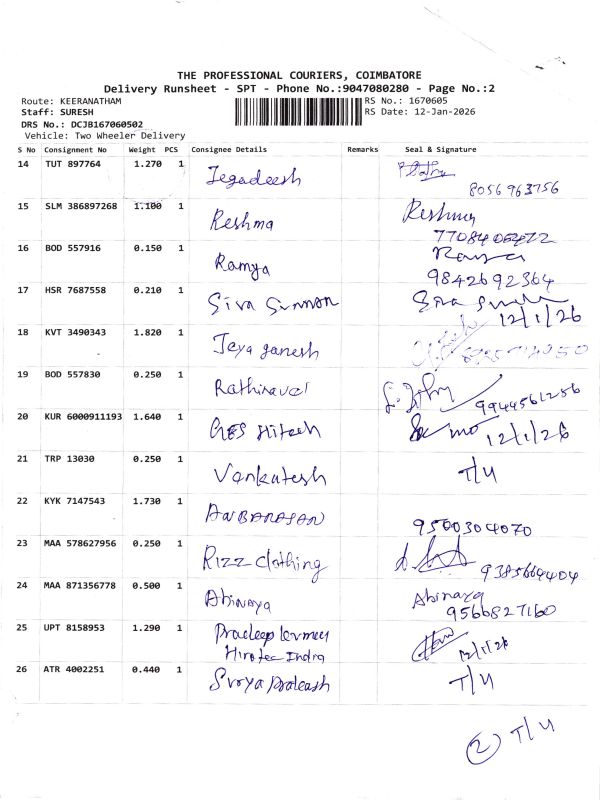 THE PROFESSIONAL COURIERS, COIMBATORE
Delivery Runsheet - SPT - Phone No.:9047080280 - Page No.:2
Route: KEERANATHAM
RS No.: 1670605
Staff: SURESH
RS Date: 12-Jan-2026
DRS No.: DCJB167060502
Vehicle: Two Wheeler Delivery
S No Consignment No Weight PCS Consignee Details Remarks Seal & Signature
14 TUT 897764 1.270 1 Jegadeesh
8056963756
15 SLM 386897268 1.100 1 Reshma Reshma
16 BOD 557916 0.150 1 Ramya Ramya
9842692364
17 HSR 7687558 0.210 1 Siva
12/1/26
18 KVT 3490343 1.820 1 Jeya ganesh
19 BOD 557830 0.250 1 Rathinavel
9944561256
20 KUR 6000911193 1.640 1 Hitech
12/1/26
21 TRP 13030 0.250 1 Venkatesh T/4
22 KYK 7147543 1.730 1 ANBARASAN
9500304070
23 MAA 578627956 0.250 1 Rizz clothing
9385664404
24 MAA 871356778 0.500 1 Abinaya Abinaya
9566827160
25 UPT 8158953 1.290 1 Pradeep kumar
Hirotec India 12/1/26
26 ATR 4002251 0.440 1 Surya Prakash T/4
2 T/4